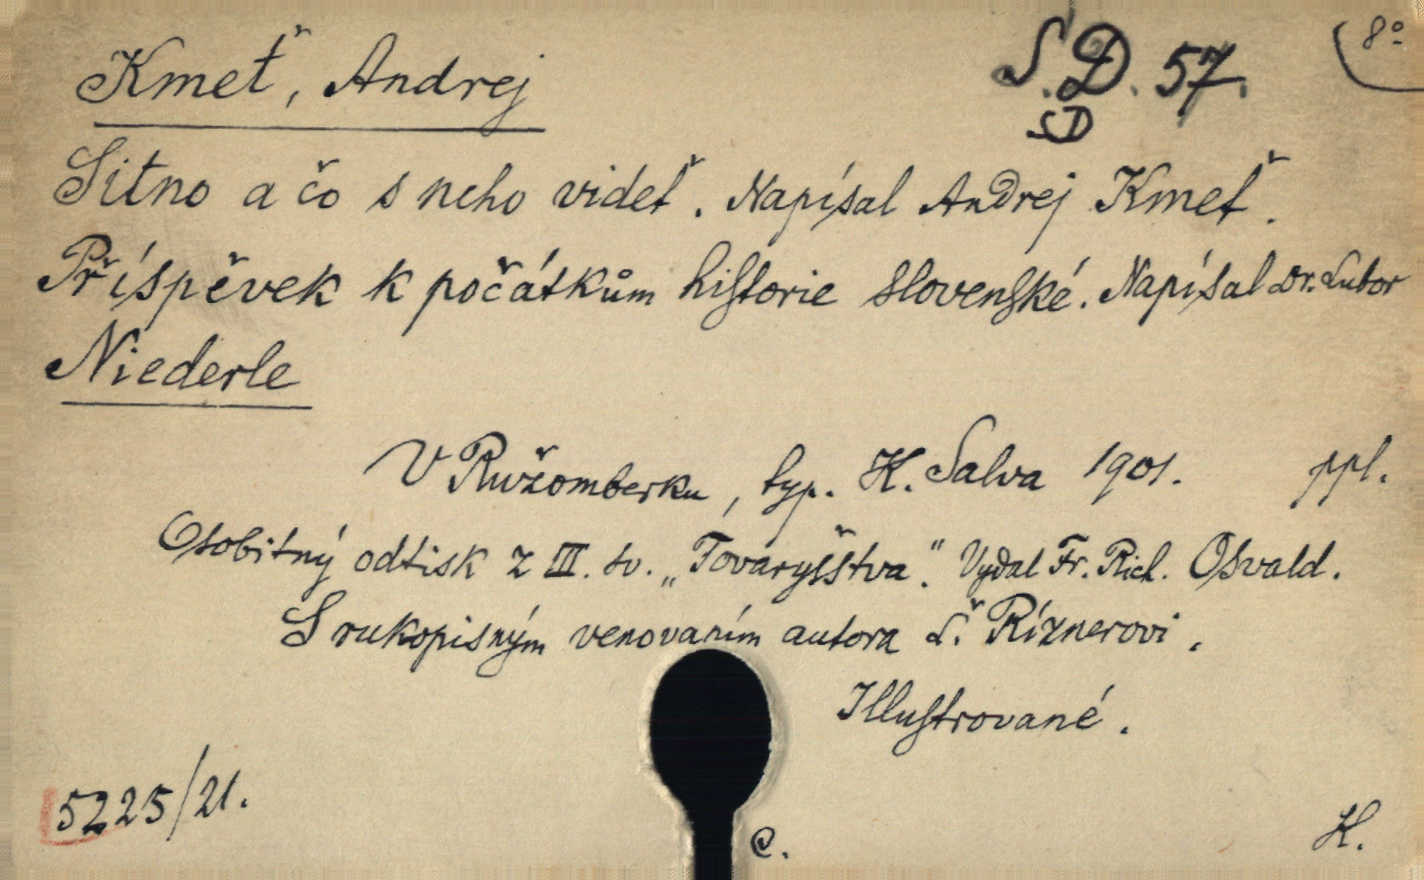 Kmeť, Andrej
S.D. 57.
8°
SD
Sitno a čo s neho videť. Napísal Andrej Kmeť.
Příspěvek k počátkům historie slovenské. Napísal Dr. Lubor
Niederle
V Ružomberku, typ. K. Salva 1901. ppl.
Osobitný odtisk z III. sv. „Tovaryšstva". Vydal Fr. Rich. Osvald.
S rukopisným venovaním autora Ľ. Ríznerovi.
Illustrované.
5225/21.
C.
K.